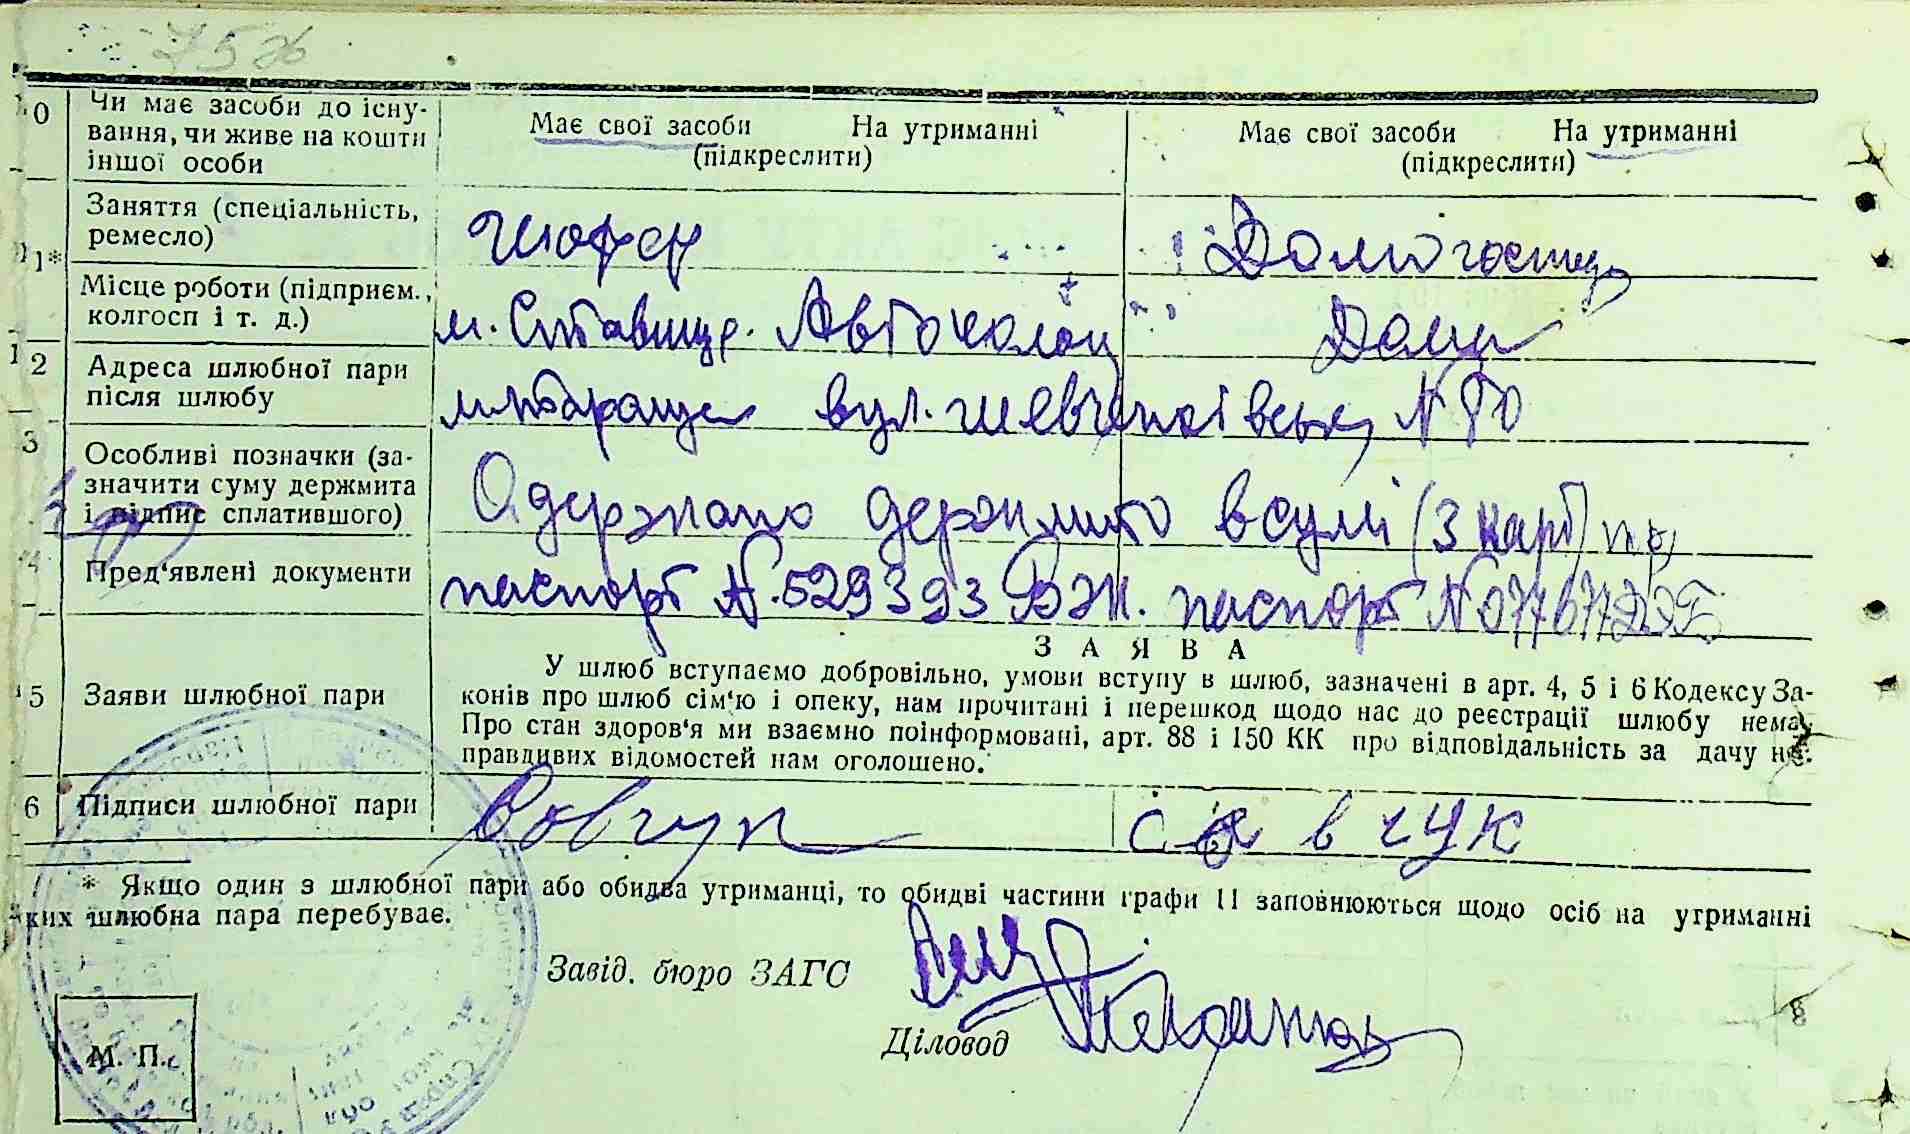 75ж
10 Чи має засоби до існу-
вання, чи живе на кошти
іншої особи
Має свої засоби На утриманні
(підкреслити)
Має свої засоби На утриманні
(підкреслити)
11* Заняття (спеціальність,
ремесло)
Шофер
Домогоспод
Місце роботи (підприєм.,
колгосп і т. д.)
м. Ставище. Автоколон
Дома
12 Адреса шлюбної пари
після шлюбу
вул. Шевченківська N
3 Особливі позначки (за-
значити суму держмита
і підпис сплатившого)
Одержано держмито в сумі (3 карб)
4 Пред'явлені документи
паспорт N. 529393 паспорт N 077677
5 Заяви шлюбної пари
ЗАЯВА
У шлюб вступаємо добровільно, умови вступу в шлюб, зазначені в арт. 4, 5 і 6 Кодексу За-
конів про шлюб сім'ю і опеку, нам прочитані і перешкод щодо нас до реєстрації шлюбу нема.
Про стан здоров'я ми взаємно поінформовані, арт. 88 і 150 КК про відповідальність за дачу не-
правдивих відомостей нам оголошено.
6 Підписи шлюбної пари
Савчук
савчук
* Якщо один з шлюбної пари або обидва утриманці, то обидві частини графи 11 заповнюються щодо осіб на утриманні
яких шлюбна пара перебуває.
Завід. бюро ЗАГС
Діловод
М. П.